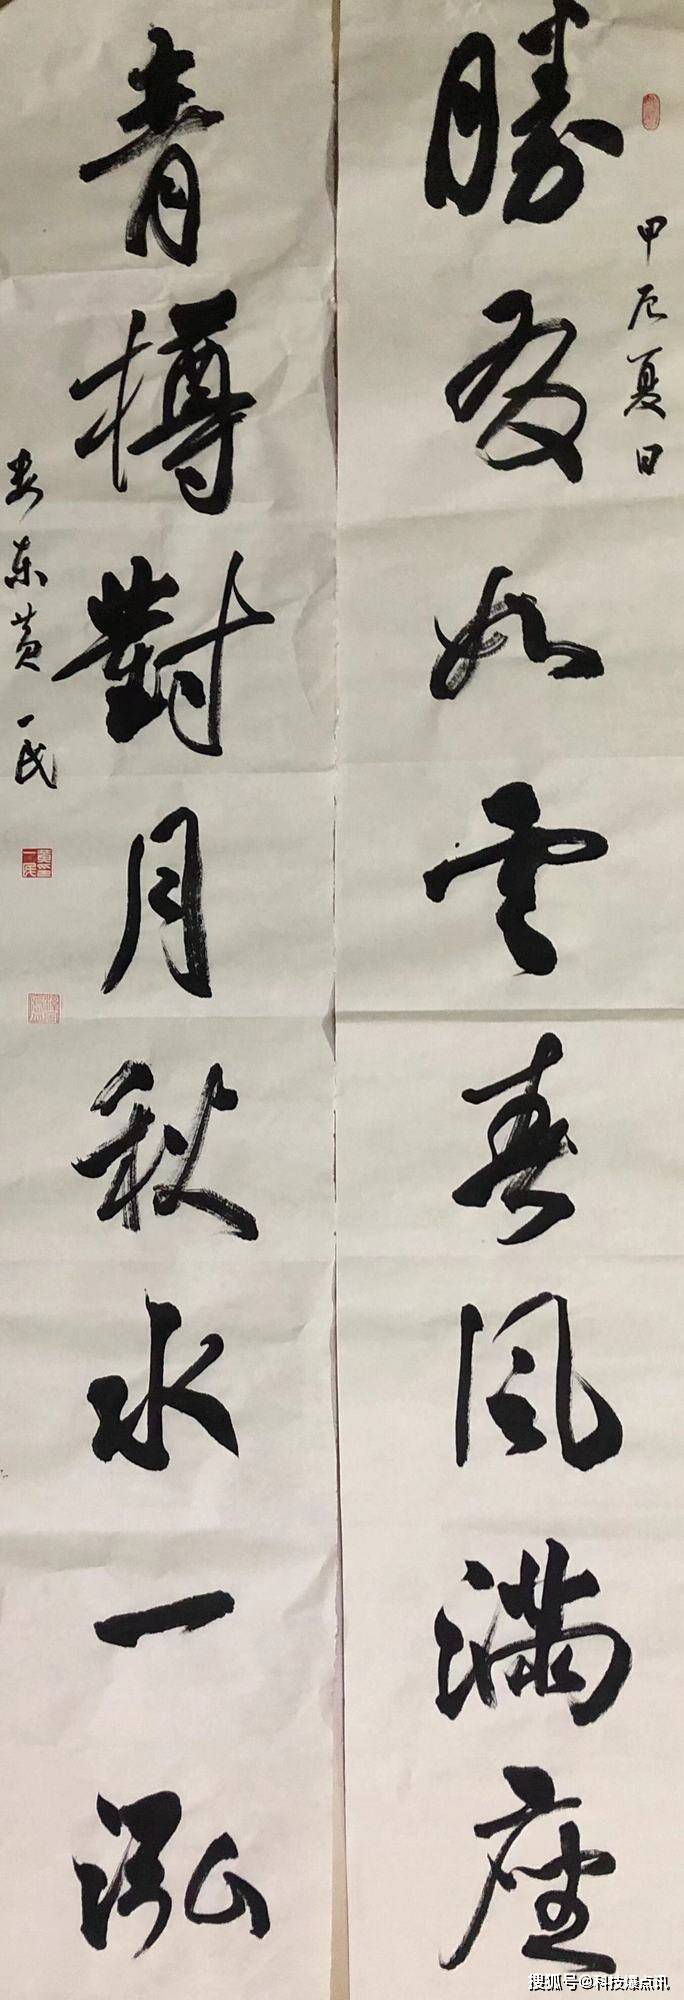 甲辰夏日
勝友如雲春风滿座
青樽對月秋水一泓
娄东黄一民
搜狐号@科技爆点讯